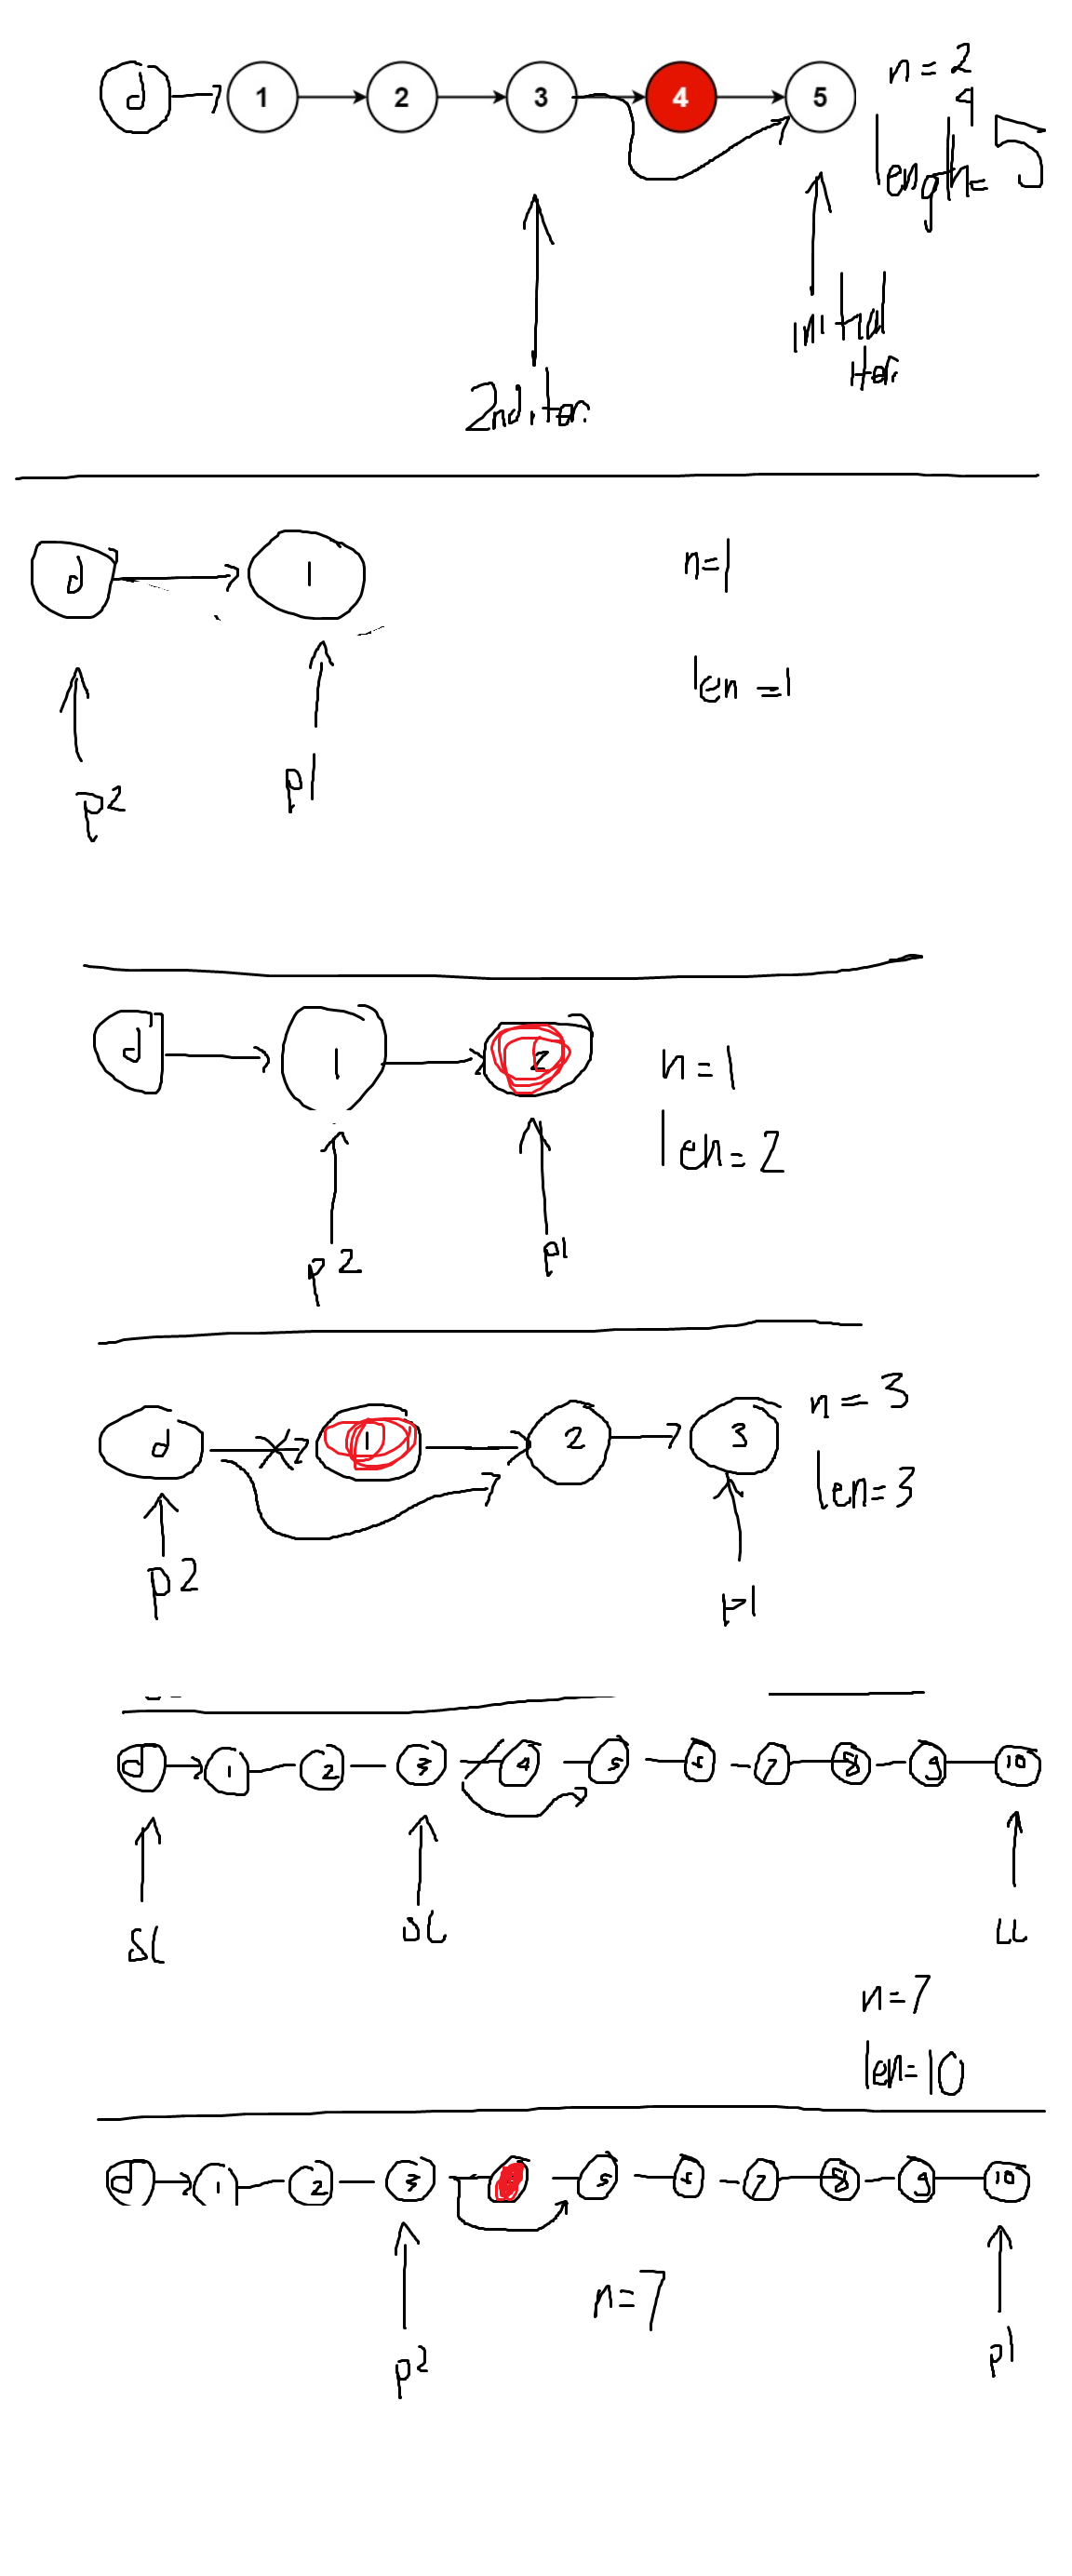 d 1 2 3 4 5 n = 2
4
length= 5
initial
iter.
2nd iter.
d 1 n=1
len =1
p2 p1
d 1 2 n = 1
len= 2
p2 p1
d 1 2 3 n = 3
len= 3
p2 p1
d 1 2 3 4 5 6 7 8 9 10
SL SL LL
n=7
len=10
d 1 2 3 5 6 7 8 9 10
n=7
p2 p1